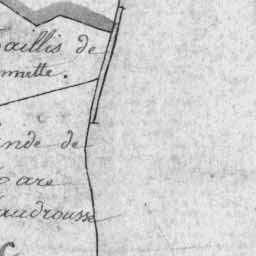 aillis de
nnette.
nde de
are
audrousse